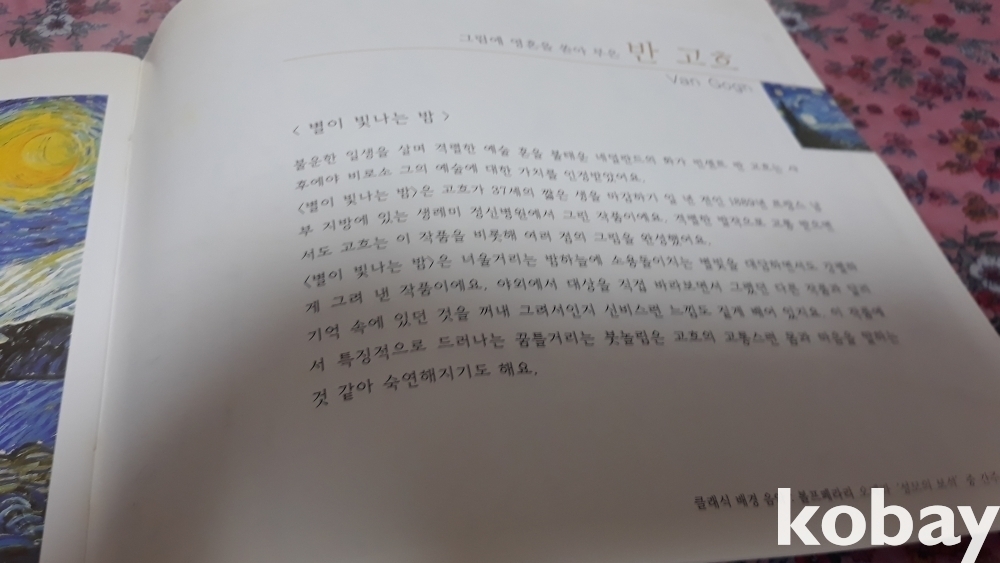 그림에 영혼을 쏟아 부은 반 고흐
Van Gogh
< 별이 빛나는 밤 >
불운한 일생을 살며 격렬한 예술 혼을 불태운 네덜란드의 화가 빈센트 반 고흐는 사
후에야 비로소 그의 예술에 대한 가치를 인정받았어요.
<별이 빛나는 밤>은 고흐가 37세의 짧은 생을 마감하기 일 년 전인 1889년 프랑스 남
부 지방에 있는 생레미 정신병원에서 그린 작품이에요. 격렬한 발작으로 고통 받으면
서도 고흐는 이 작품을 비롯해 여러 점의 그림을 완성했어요.
<별이 빛나는 밤>은 너울거리는 밤하늘에 소용돌이치는 별빛을 대담하면서도 강렬하
게 그려 낸 작품이에요. 야외에서 대상을 직접 바라보면서 그렸던 다른 작품과 달리
기억 속에 있던 것을 꺼내 그려서인지 신비스런 느낌도 짙게 배어 있지요. 이 작품에
서 특징적으로 드러나는 꿈틀거리는 붓놀림은 고흐의 고통스런 몸과 마음을 말하는
것 같아 숙연해지기도 해요.
클래식 배경 음악 볼프페라리 오페라 '성모의 보석' 중 간주
kobay